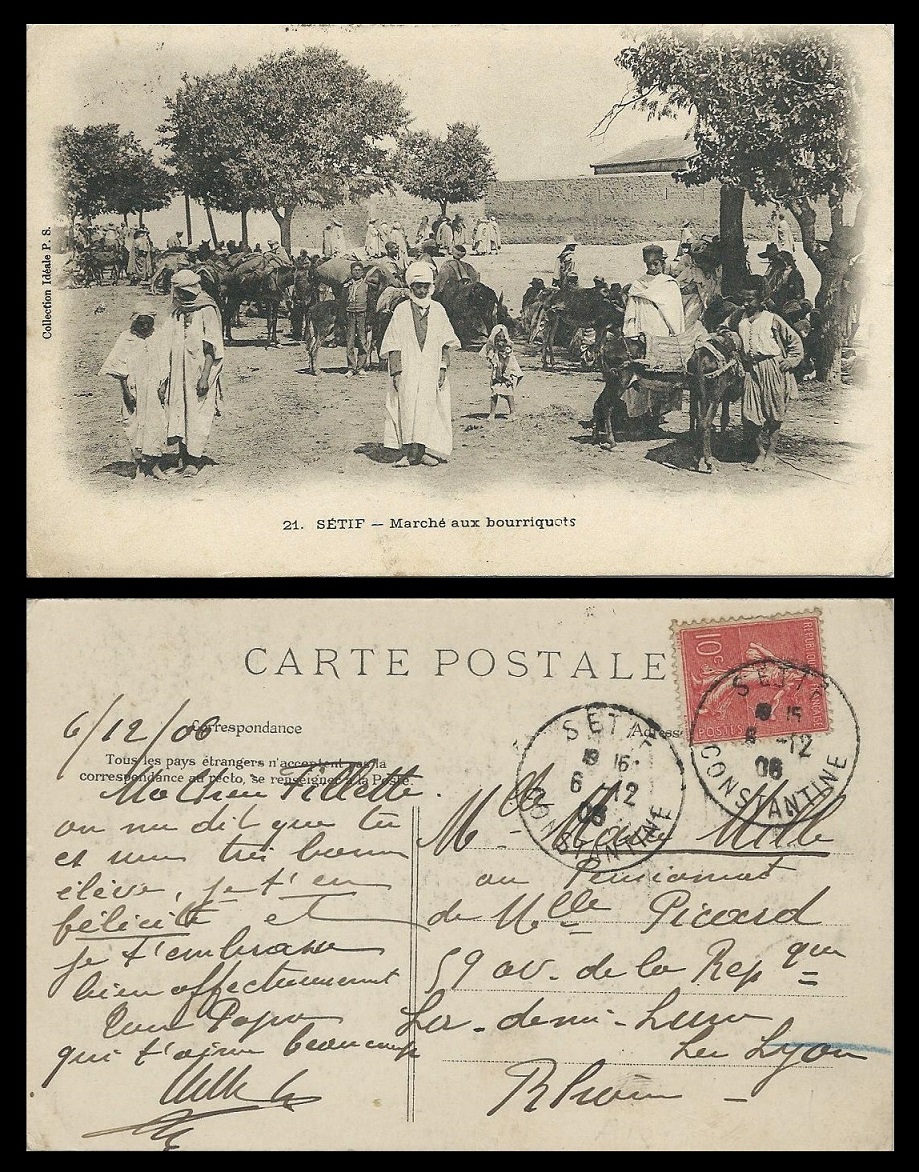 Collection Idéale P. S.
21. SÉTIF — Marché aux bourriquots
CARTE POSTALE
10c
REPUBLIQUE FRANÇAISE
POSTES
SETIF
15
12
06
CONSTANTINE
SETIF
16
6 12
06
CONSTANTINE
6/12/06
Correspondance
Adresse
Tous les pays étrangers n'acceptent pas la
correspondance au recto, se renseigner à la Poste
Ma Chere Fillette.
on me dit que tu
es une très bonne
élève, je t'en
félicite et
je t'embrasse
bien affectueusement
Ton Papa
qui t'aime beaucoup
Mille
Mlle Mille
au Pensionnat
de Mlle Picard
59 av. de la Repque
La-demi-Lune
Les Lyon
Rhône -